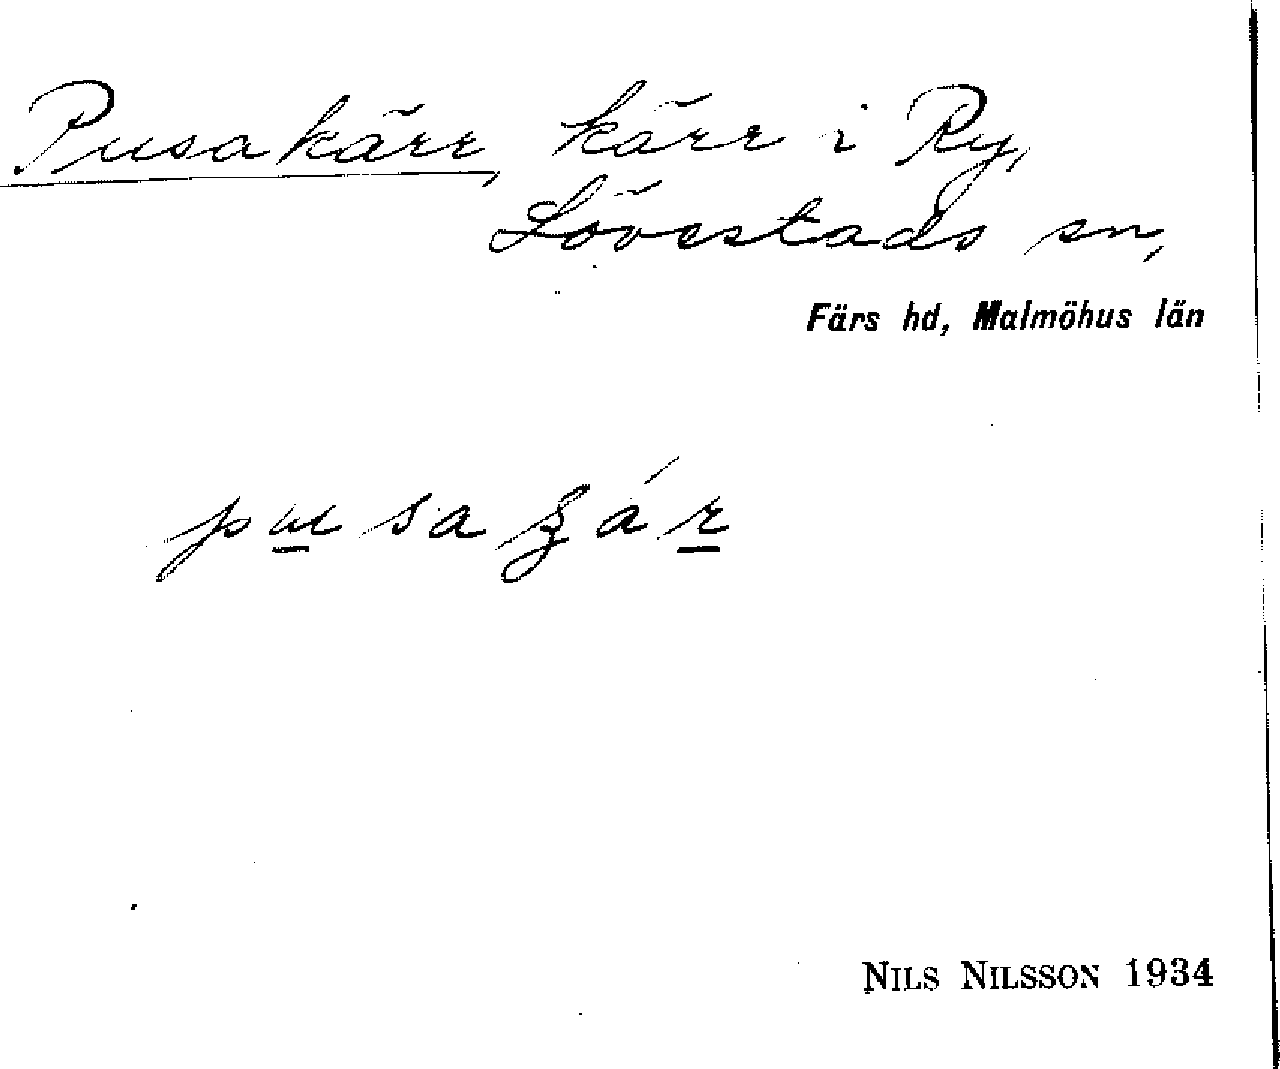 Pusakärr, kärr i Ry,
Lövestads sn,
Färs hd, Malmöhus län
NILS NILSSON 1934